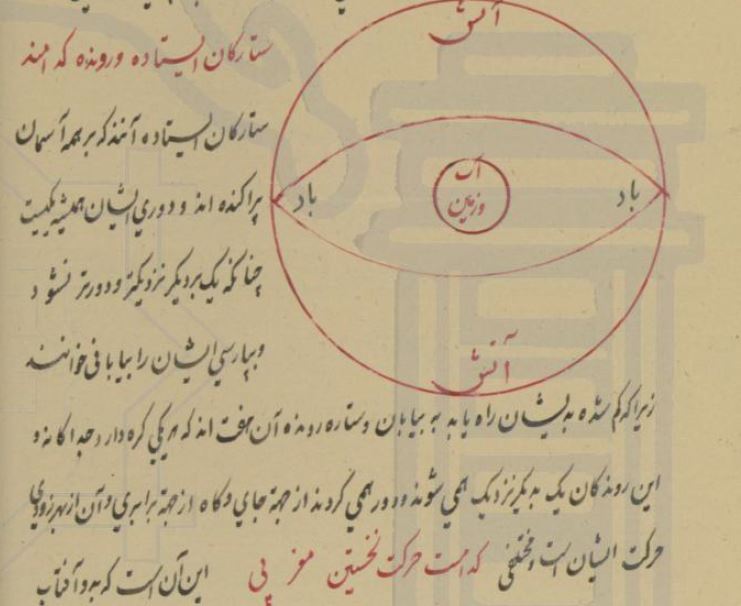 ستارگان ایستاده ورونده کدامند
ستارگان ایستاده آنند که بر همه آسمان
پراکنده اند و دوری ایشان همیشه یکیست
چنانکه یک بر دیگر نزدیکتر و دورتر نشود
و بپارسی ایشان را بیابانی خوانند
آتش
باد
آب
وزمین
باد
آتش
زیرا که گم شده بدیشان راه یابد به بیابان وستاره رونده آن هفت اند که هر یکی کره دارد جداگانه و
این روندگان یک بدیگر نزدیک همی شوند و دور همی گردند از جهة جای وگاه از جهة برابری وآن از بهر زودی
حرکت ایشان است مختلفی کدامست حرکت نخستین مغربی این آن است که بدو آفتاب